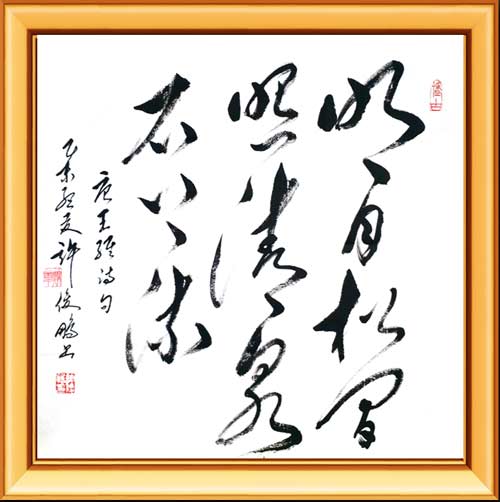 明月松间
照清泉
石上流
唐王维诗句
乙未夏许俊鹏书